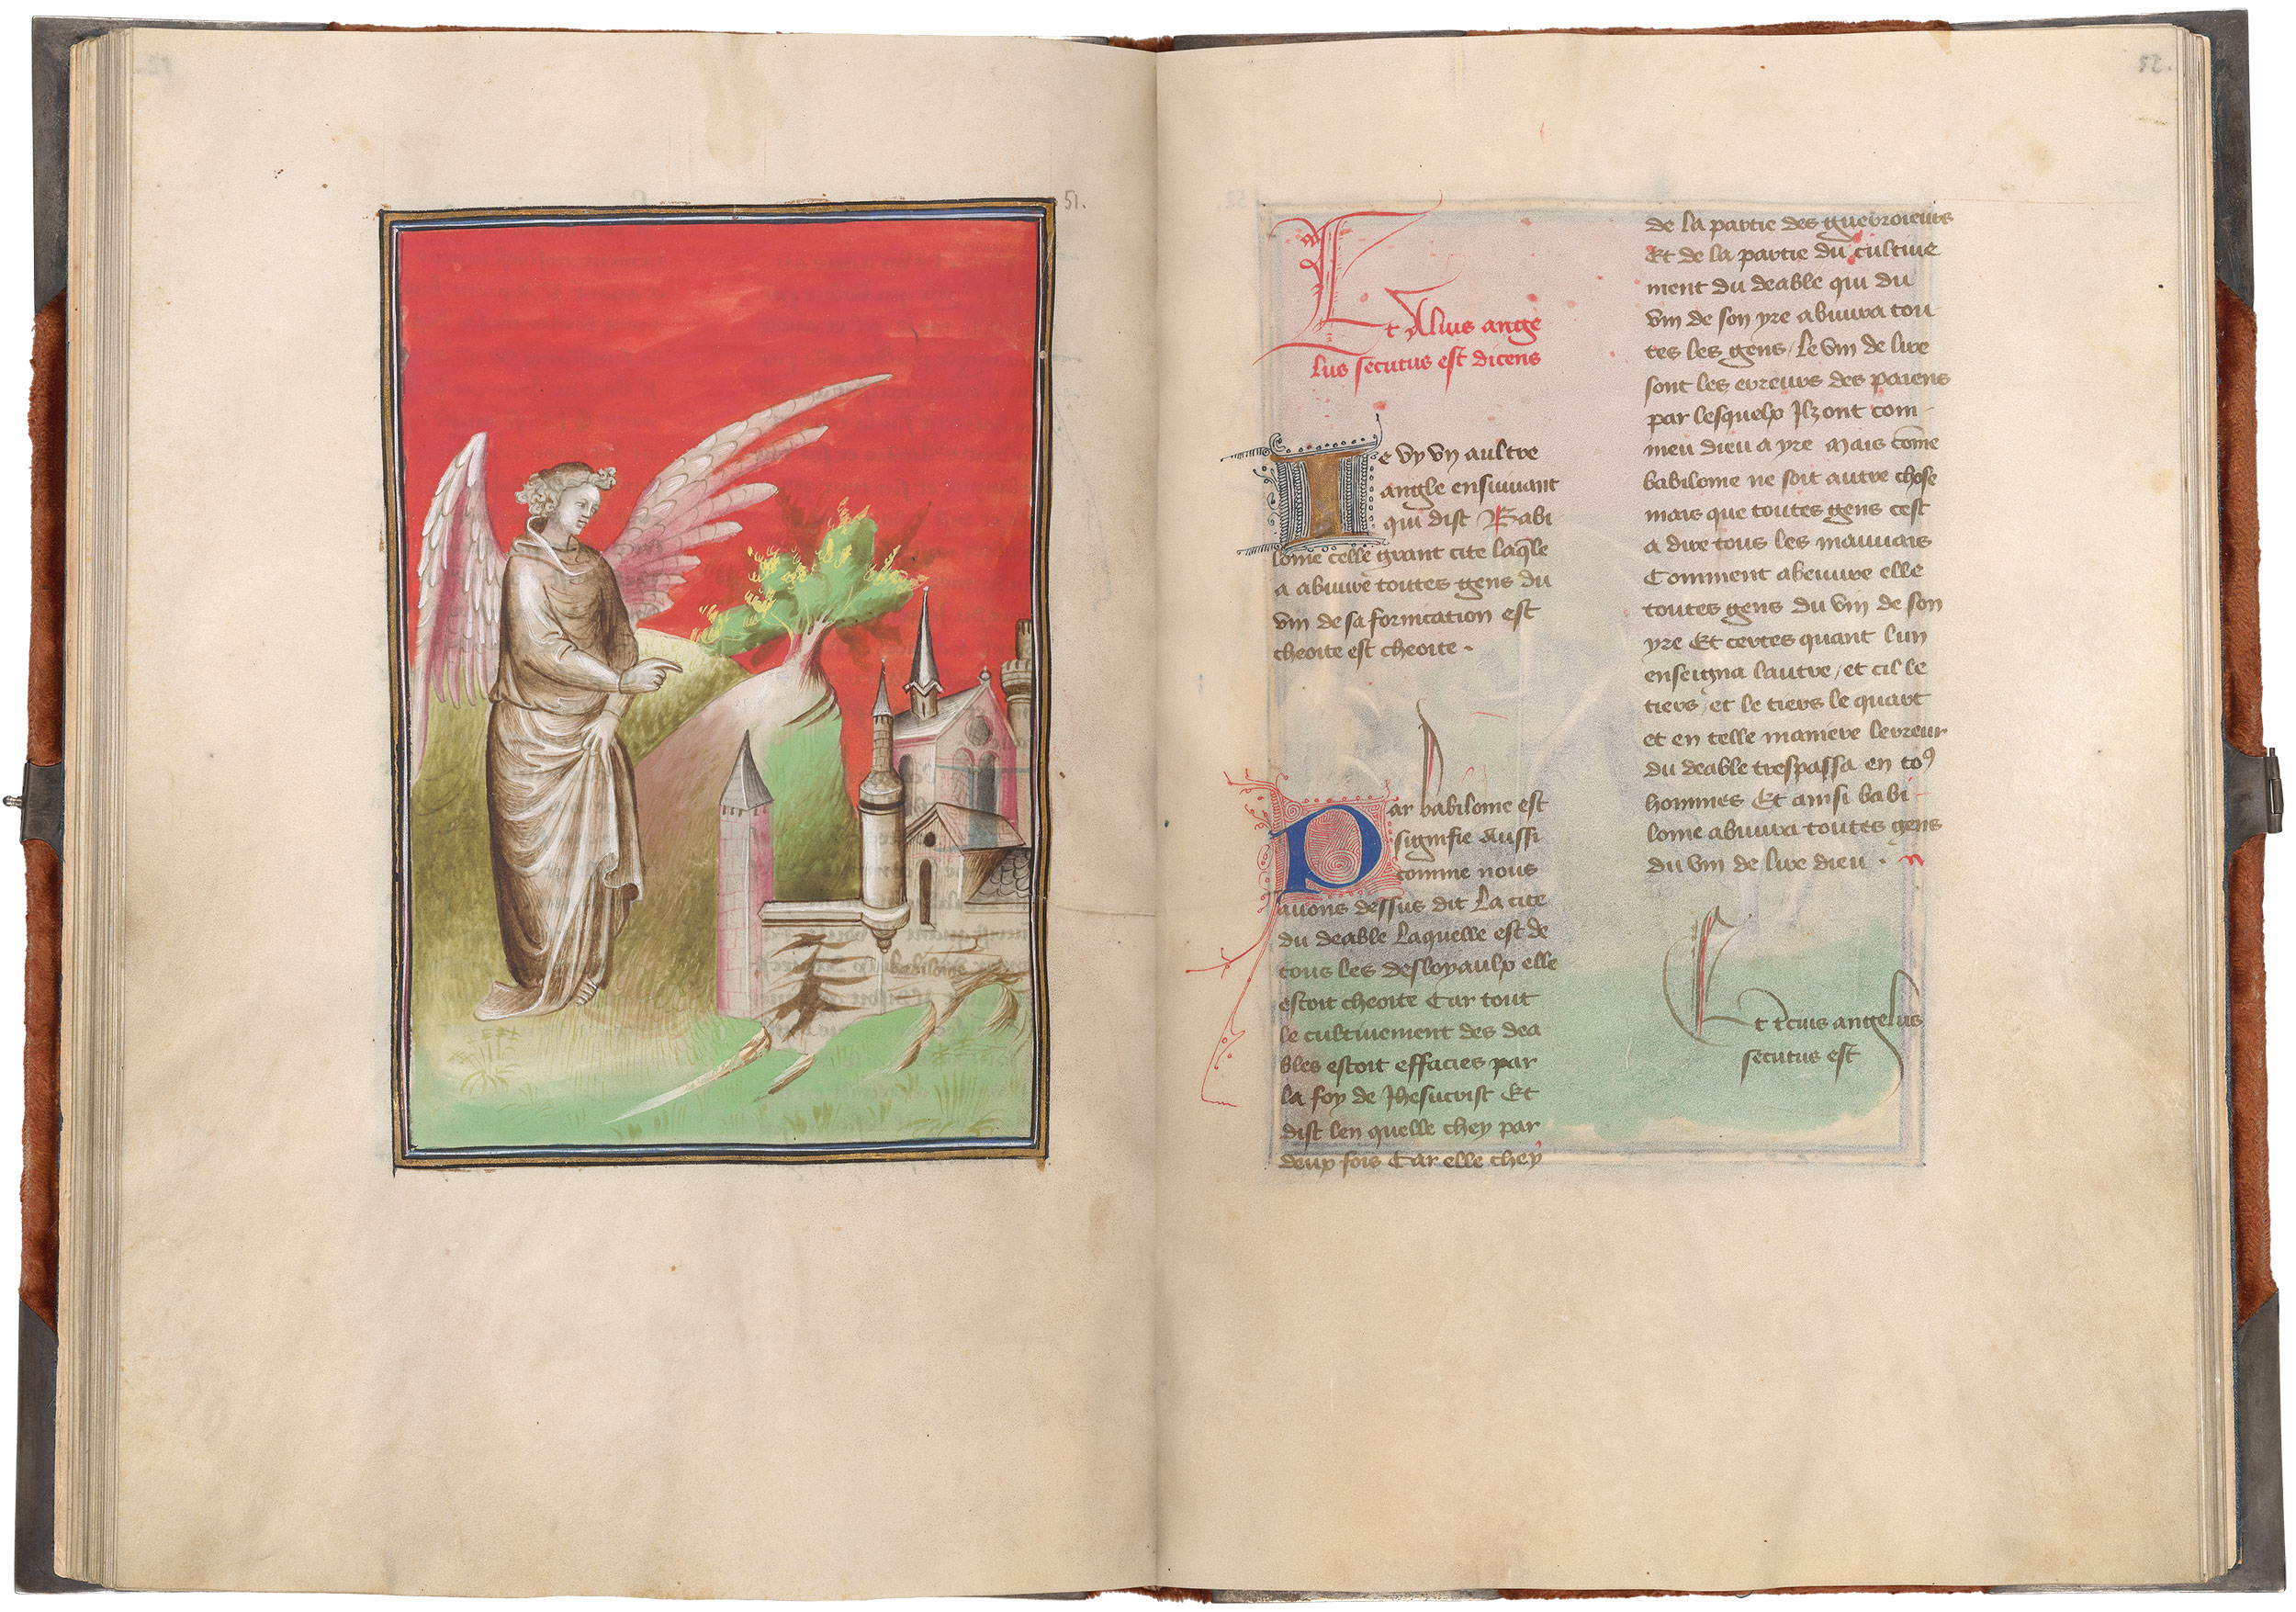 51.
52.
Et Alius ange
lus secutus est dicens
Je vy vn aultre
angle ensuiuant
qui dist Babi
lonie celle grant cite laqle
a abuure toutes gens du
vin de sa fornication est
cheoite est cheoite .
Par babilonie est
signifie Aussi
comme nous
auons dessus dit La cite
du deable Laquelle est de
tous les desloyaulx elle
estoit cheoite Car tout
le cultiuement des dea
bles estoit effacies par
la foy de Jhesucrist Et
dist len quelle chey par
deux fois Car elle chey
de la partie des guerroieurs
Et de la partie du cultiue
ment du deable qui du
vin de son yre abuura tou
tes les gens / Le vin de lire
sont les erreurs des paiens
par lesquelx Ilz ont com-
meu dieu a yre Mais come
babilonie ne soit autre chose
mais que toutes gens cest
a dire tous les mauuais
Comment abeuure elle
toutes gens du vin de son
yre Et certes quant lun
enseigna lautre / et cil le
tiers / et le tiers le quart
et en telle maniere lerreur
du deable trespassa en to9
hommes Et ainsi babi
lonie abuura toutes gens
du vin de lire dieu .
Et tcius angelus
secutus est
babilone